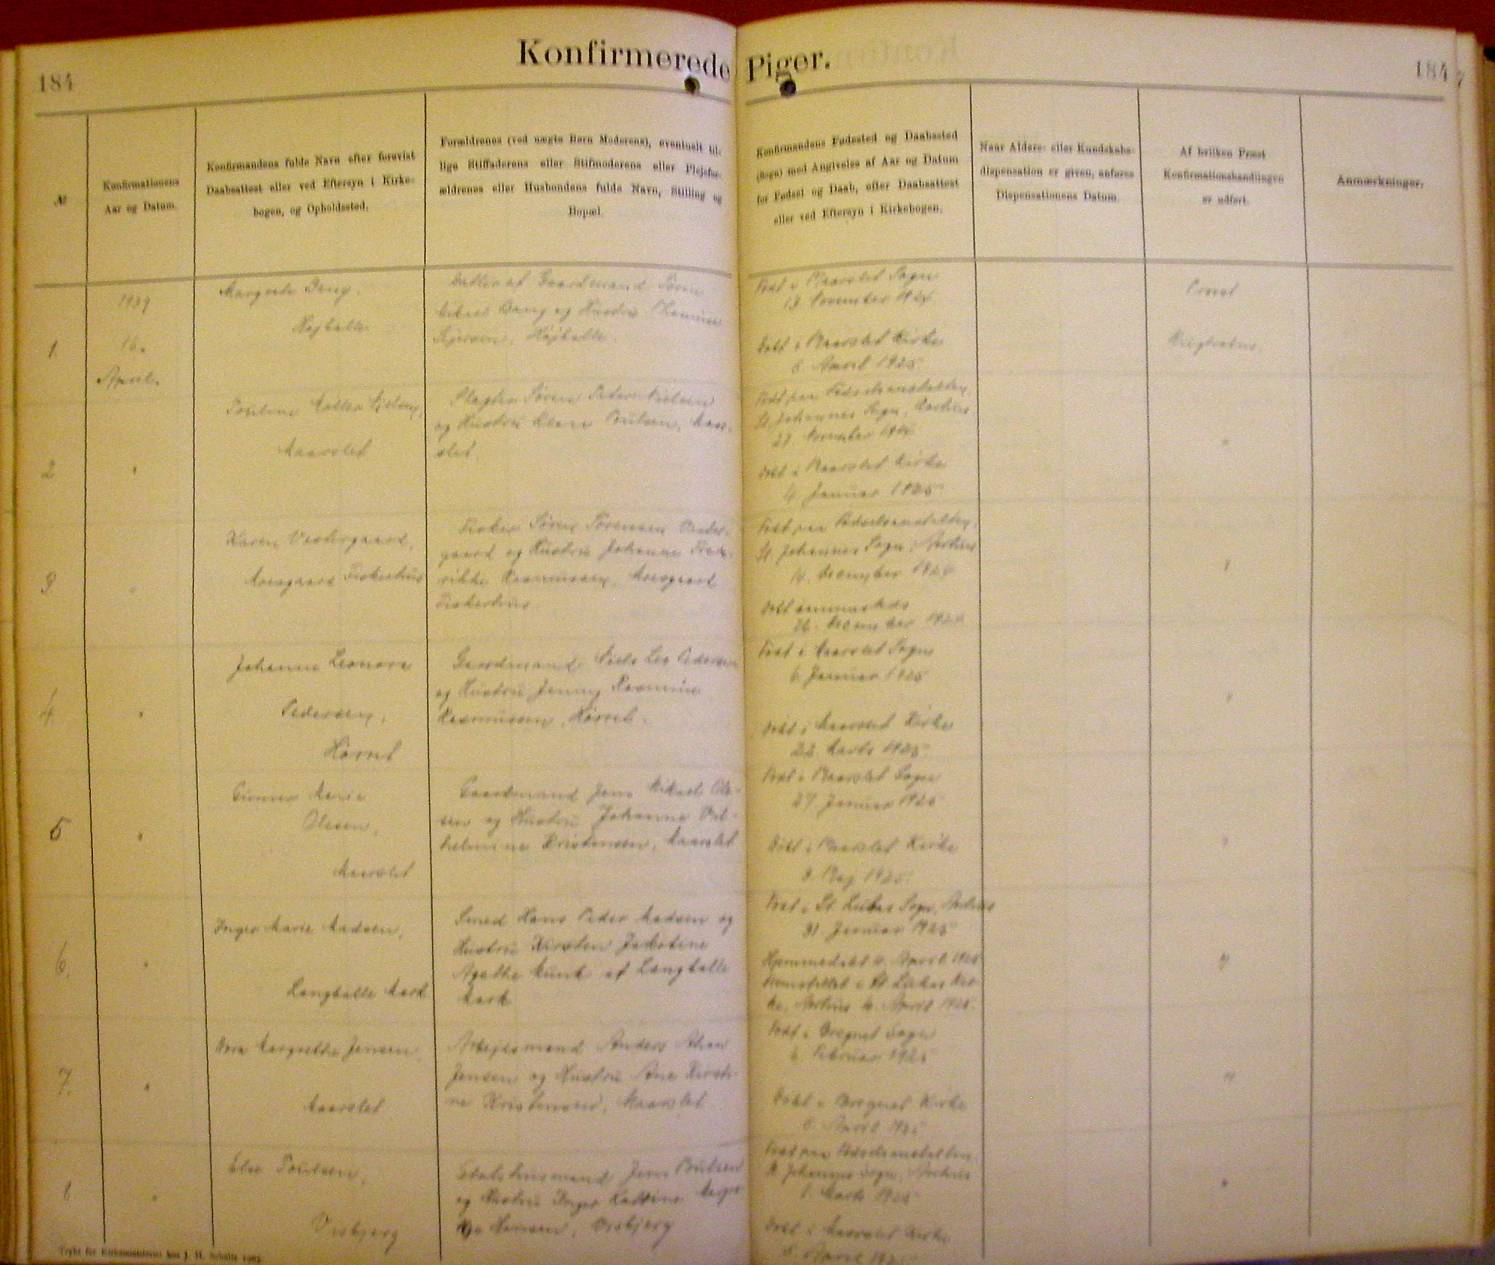 184
Konfirmerede Piger.
184
№
Konfirmationens
Aar og Datum.
Konfirmandens fulde Navn efter forevist
Daabsattest eller ved Eftersyn i Kirke-
bogen, og Opholdssted.
Forældrenes (ved uægte Børn Moderens), eventuelt til-
lige Stiffaderens eller Stifmoderens eller Plejefor-
ældrenes eller Husbondens fulde Navn, Stilling og
Bopæl.
Konfirmandens Fødested og Daabssted
(Sogn) med Angivelse af Aar og Datum
for Fødsel og Daab, efter Daabsattest
eller ved Eftersyn i Kirkebogen.
Naar Alders- eller Kundskabs-
dispensation er given, anføres
Dispensationens Datum.
Af hvilken Præst
Konfirmationshandlingen
er udført.
Anmærkninger.
1
1939
16.
April.
Margrete Bang.
Højballe
Datter af Gaardmand Søren
Mikael Bang og Hustru
Højballe.
Født i Maarslet Sogn
13. November 1924
Døbt i Maarslet Kirke
5. April 1925
Provst
2
"
Pouline Møller Nielsen,
Maarslet
Slagter Søren Peter Nielsen
og Hustru Klara Poulsen, Maar-
slet.
Født paa Fødselsanstalten,
St. Johannes Sogn, Aarhus
27. November 1924
Døbt i Maarslet Kirke
4. Januar 1925
"
3
"
Karen Vestergaard,
Moesgaard Fiskerhus
Fisker Søren Sørensen Vester-
gaard og Hustru Johanne Fred-
rikke Rasmussen, Moesgaard
Fiskerhus
Født paa Fødselsanstalten,
St. Johannes Sogn, Aarhus
14. December 1924
Døbt sammesteds
26. December 1924
"
4
"
Johanne Leonora
Pedersen,
Hørret
Gaardmand Niels Leo Pedersen
og Hustru Jenny Rasmine
Rasmussen, Hørret.
Født i Maarslet Sogn
6. Januar 1925
Døbt i Maarslet Kirke
22. Marts 1925.
"
5
"
Gunver Marie
Olesen,
Maarslet
Gaardmand Jens Mikael Ole-
sen og Hustru Johanne Vil-
helmine Kristensen, Maarslet
Født i Maarslet Sogn
27. Januar 1925
Døbt i Maarslet Kirke
3. Maj 1925.
"
6.
"
Inger Marie Madsen,
Langballe Mark
Smed Hans Peder Madsen og
Hustru Kirsten Jakobine
Agathe Munk af Langballe
Mark
Født i St. Lukas Sogn, Aarhus
31 Januar 1925
Hjemmedøbt 4. April 1925
Fremstillet i St. Lukas Kir-
ke, Aarhus
April 1925.
"
7.
"
Dora Margrethe Jensen
Maarslet
Arbejdsmand Anders
Jensen og Hustru Ane Kirsti-
ne Kristensen, Maarslet
Født i Bregnet Sogn
6. Februar 1925
Døbt i Bregnet Kirke
5. April 1925
"
8
"
Else Poulsen,
Visbjerg
Statshusmand Jens Poulsen
og Hustru Inger Katrine
Hansen, Visbjerg
Født paa Fødselsanstalten
St. Johannes Sogn, Aarhus
1. Marts 1925
Døbt i Maarslet Kirke
5. April 1925
"
Trykt for Kirkeministeriet hos J. H. Schultz